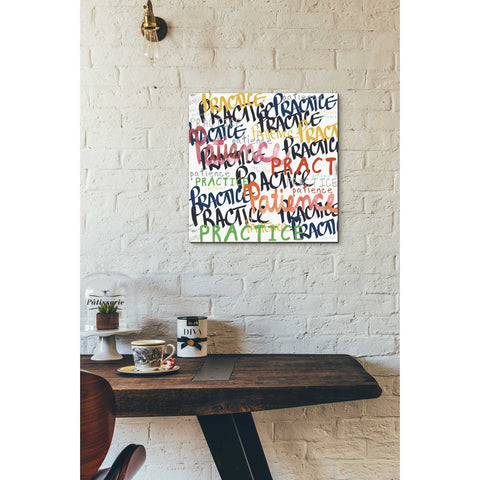 PRACTICE PRACTICE
PRACTICE PRACTICE
PRACTICE patience PRACTICE
Patience PRACTICE
PRACTICE PRACTICE
patience PRACTICE
PRACTICE patience
PRACTICE Patience
PRACTICE PRACTICE
PRACTICE PRACTICE
Pâtisserie
DIVA